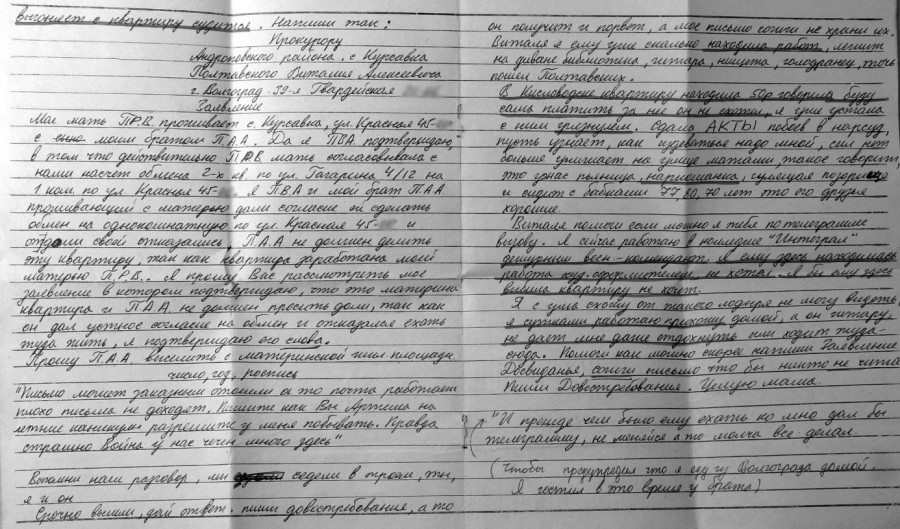 выгоняет с квартиру судится. Напиши так:
Прокурору
Андроповского района. с Курсавка
Полтавского Виталия Алексеевича
г. Волгоград - 39-я Гвардейская
Заявление
Моя мать П.Р.В. проживает с. Курсавка, ул. Красная 45-
с моим братом П.А.А. Да я ПВА подтверждаю,
в том что действительно П.Р.В. мать согласовывала с
нами насчет обмена 2-х кв. по ул. Гагарина 4/12 на
1 ком. по ул Красная 45- я ПВА и мой брат ПАА
проживающий с матерью дали согласие ей сделать
обмен на однокомнатную по ул. Красная 45- и
от доли своей отказались. П.А.А не должен делить
эту квартиру, так как квартира заработана моей
матерью П.Р.В.. Я прошу Вас рассмотреть мое
заявление в котором подтверждаю, что это материна
квартира и ПАА не должен просить доли, так как
он дал устное согласие на обмен и отказался ехать
туда жить, я подтверждаю его слова.
Прошу П.А.А. выселить с материнской жил-площади.
число, год, роспись
"Письмо может заказным отошли а то почта работает
плохо письма не доходят. Пишите как Вы Артема на
летние каникулы разрешите у меня побывать. Правда
страшно Война у нас чечен много здесь"
Вспомни наш разговор, мы седели в троем, ты,
я и он
Срочно вышли, дай ответ. пиши довостребования, а то
он получит и порвет, а мое письмо сожги не храни их.
Виталя я ему уже сколько находила работ, лежит
на диване библиотека, гитара, нищета, голодранец, точь
пошел Полтавских.
В Кисловодске квартиру находила 50р говорила буду
сама платить за нее он не схотел, я уже устала
с ним Сдала АКТЫ побоев в нарсуд,
пусть узнает, как издеваться надо мной, сил нет
больше улюлюкает на улице матами такое говорит,
это у нас пьяница, наркоманка, гулящая позорище
и сидит с бабками 77, 80, 70 лет это его друзья
хорошие.
Виталя помоги если можно я тебя по телеграмме
вызову. Я сейчас работаю в колледже "Интеграл"
дежурным воен-комендант. Я ему здесь находила
работа худ-оформителем не хотел. Я бы ему здесь
выбила квартиру не хочет.
Я с ума схожу от такого лодыря не могу видеть,
я сутками работаю прихожу домой, а он гитару,
не дает мне даже отдохнуть или ходит туда-
сюда. Помоги как можно скорее напиши Заявление
Досвиданья, сожги письмо что бы никто не читал
Пиши Довостребования. Целую мама.
"И прежде чем было ему ехать ко мне дал бы
телеграмму, не меняйся а то молча все делал.
(Чтобы предупредил что я еду из Волгограда домой.
Я гостил в это время у брата)